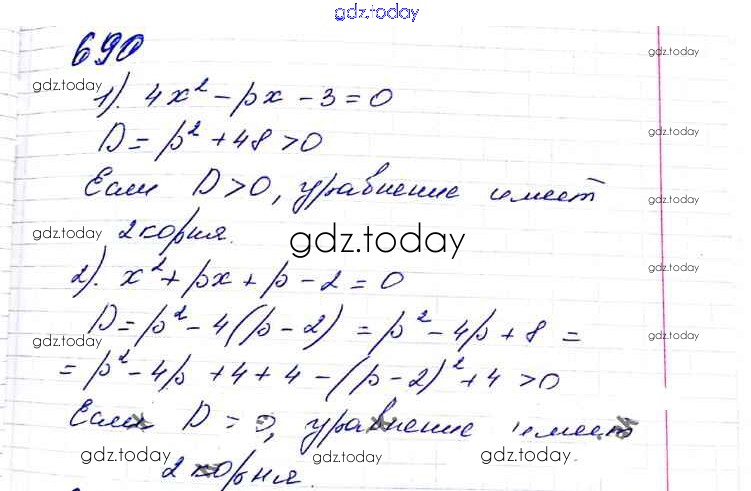 gdz.today
690
gdz.today
gdz.today
1). 4x² - px - 3 = 0
gdz.today
D = p² + 48 > 0
Если D > 0, уравнение имеет
gdz.today
2 корня.
gdz.today
gdz.today
gdz.today
2). x² + px + p - 2 = 0
gdz.today
D = p² - 4(p - 2) = p² - 4p + 8 =
gdz.today
gdz.today
= p² - 4p + 4 + 4 - (p - 2)² + 4 > 0
Если D = 0, уравнение имеет
gdz.today
gdz.today
gdz.today
2 корня.